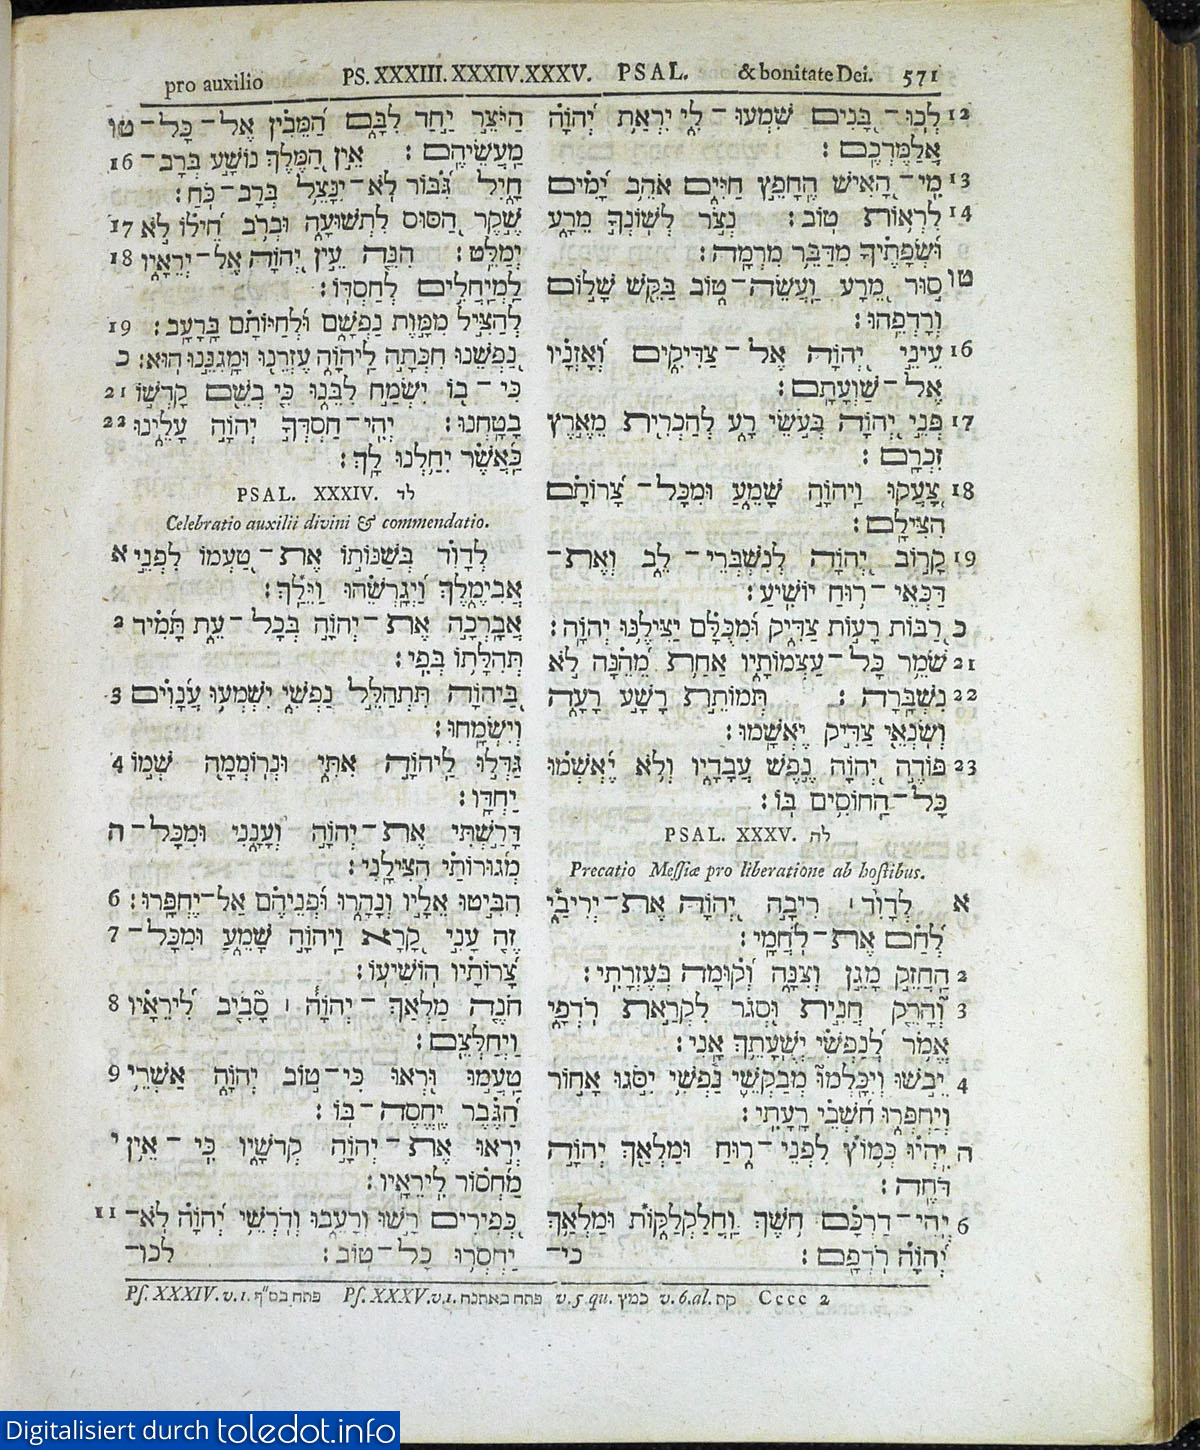 pro auxilio PS. XXXIII. XXXIV. XXXV. PSAL. & bonitate Dei. 571
הַיֹּצֵר יַחַד לִבָּם הַמֵּבִין אֶל־כָּל־ טו
מַעֲשֵׂיהֶם : אֵין הַמֶּלֶךְ נוֹשָׁע בְּרָב־ 16
חָיִל גִּבּוֹר לֹא־יִנָּצֵל בְּרָב־כֹּחַ :
שֶׁקֶר הַסּוּס לִתְשׁוּעָה וּבְרֹב חֵילוֹ לֹא 17
יְמַלֵּט : הִנֵּה עֵין יְהוָֹה אֶל־יְרֵאָיו 18
לַמְיַחֲלִים לְחַסְדּוֹ :
לְהַצִּיל מִמָּוֶת נַפְשָׁם וּלְחַיּוֹתָם בָּרָעָב : 19
נַפְשֵׁנוּ חִכְּתָה לַיהוָֹה עֶזְרֵנוּ וּמָגִנֵּנוּ הוּא : כ
כִּי־בוֹ יִשְׂמַח לִבֵּנוּ כִּי בְשֵׁם קָדְשׁוֹ 21
בָטָחְנוּ : יְהִי־חַסְדְּךָ יְהוָֹה עָלֵינוּ 22
כַּאֲשֶׁר יִחַלְנוּ לָךְ :
PSAL. XXXIV. לד
Celebratio auxilii divini & commendatio.
לְדָוִד בְּשַׁנּוֹתוֹ אֶת־טַעְמוֹ לִפְנֵי א
אֲבִימֶלֶךְ וַיְגָרְשֵׁהוּ וַיֵּלַךְ :
אֲבָרְכָה אֶת־יְהוָֹה בְּכָל־עֵת תָּמִיד 2
תְּהִלָּתוֹ בְּפִי :
בַּיהוָֹה תִּתְהַלֵּל נַפְשִׁי יִשְׁמְעוּ עֲנָוִים 3
וְיִשְׂמָחוּ :
גַּדְּלוּ לַיהוָֹה אִתִּי וּנְרוֹמְמָה שְׁמוֹ 4
יַחְדָּו :
דָּרַשְׁתִּי אֶת־יְהוָֹה וְעָנָנִי וּמִכָּל־ ה
מְגוּרוֹתַי הִצִּילָנִי :
הִבִּיטוּ אֵלָיו וְנָהָרוּ וּפְנֵיהֶם אַל־יֶחְפָּרוּ : 6
זֶה עָנִי קָרָא וַיהוָֹה שָׁמֵעַ וּמִכָּל־ 7
צָרוֹתָיו הוֹשִׁיעוֹ :
חֹנֶה מַלְאַךְ־יְהוָֹה ׀ סָבִיב לִירֵאָיו 8
וַיְחַלְּצֵם :
טַעֲמוּ וּרְאוּ כִּי־טוֹב יְהוָֹה אַשְׁרֵי 9
הַגֶּבֶר יֶחֱסֶה־בּוֹ :
יְראוּ אֶת־יְהוָֹה קְדֹשָׁיו כִּי־אֵין י
מַחְסוֹר לִירֵאָיו :
כְּפִירִים רָשׁוּ וְרָעֵבוּ וְדֹרְשֵׁי יְהוָֹה לֹא־ 11
יַחְסְרוּ כָל־טוֹב : לכו־
12 לְכוּ־בָנִים שִׁמְעוּ־לִי יִרְאַת יְהוָֹה
אֲלַמֶּדְכֶם :
13 מִי־הָאִישׁ הֶחָפֵץ חַיִּים אֹהֵב יָמִים
14 לִרְאוֹת טוֹב : נְצֹר לְשׁוֹנְךָ מֵרָע
וּשְׂפָתֶיךָ מִדַּבֵּר מִרְמָה :
טו סוּר מֵרָע וַעֲשֵׂה־טוֹב בַּקֵּשׁ שָׁלוֹם
וְרָדְפֵהוּ :
16 עֵינֵי יְהוָֹה אֶל־צַדִּיקִים וְאָזְנָיו
אֶל־שַׁוְעָתָם :
17 פְּנֵי יְהוָֹה בְּעֹשֵׂי רָע לְהַכְרִית מֵאֶרֶץ
זִכְרָם :
18 צָעֲקוּ וַיהוָֹה שָׁמֵעַ וּמִכָּל־צָרוֹתָם
הִצִּילָם :
19 קָרוֹב יְהוָֹה לְנִשְׁבְּרֵי־לֵב וְאֶת־
דַּכְּאֵי־רוּחַ יוֹשִׁיעַ :
כ רַבּוֹת רָעוֹת צַדִּיק וּמִכֻּלָּם יַצִּילֶנּוּ יְהוָֹה :
21 שֹׁמֵר כָּל־עַצְמוֹתָיו אַחַת מֵהֵנָּה לֹא
22 נִשְׁבָּרָה : תְּמוֹתֵת רָשָׁע רָעָה
וְשֹׂנְאֵי צַדִּיק יֶאְשָׁמוּ :
23 פּוֹדֶה יְהוָֹה נֶפֶשׁ עֲבָדָיו וְלֹא יֶאְשְׁמוּ
כָּל־הַחוֹסִים בּוֹ :
PSAL. XXXV. לה
Precatio Messiæ pro liberatione ab hostibus.
א לְדָוִד ׀ רִיבָה יְהוָֹה אֶת־יְרִיבַי
לְחַם אֶת־לֹחֲמָי :
2 הַחֲזֵק מָגֵן וְצִנָּה וְקוּמָה בְּעֶזְרָתִי :
3 וְהָרֵק חֲנִית וּסְגֹר לִקְרַאת רֹדְפָי
אֱמֹר לְנַפְשִׁי יְשֻׁעָתֵךְ אָנִי :
4 יֵבֹשׁוּ וְיִכָּלְמוּ מְבַקְשֵׁי נַפְשִׁי יִסֹּגוּ אָחוֹר
וְיַחְפְּרוּ חֹשְׁבֵי רָעָתִי :
ה יִהְיוּ כְּמוֹץ לִפְנֵי־רוּחַ וּמַלְאַךְ יְהוָֹה
דֹּחֶה :
6 יְהִי־דַרְכָּם חֹשֶׁךְ וַחֲלַקְלַקּוֹת וּמַלְאַךְ
יְהוָֹה רֹדְפָם : כי־
Ps. XXXIV. v. 1. פתח בס"ף Ps. XXXV. v. 1. פתח באתנח v. 5. qu. כמץ v. 6. al. קת Cccc 2
Digitalisiert durch toledot.info